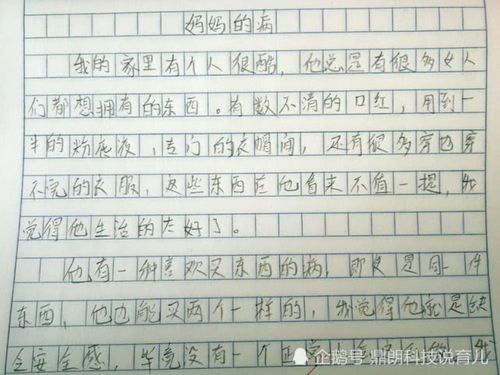 妈妈的病
我的家里有个人很酷，他总是有很多女人
们都想拥有的东西。有数不清的口红，用到一
半的粉底液，专门的衣帽间，还有很多穿也穿
不完的衣服，这些东西在他看来不值一提，我
觉得他生活的太好了。
他有一种喜欢买东西的病，即使是同一件
东西，他也能买两个一样的，我觉得他就是缺
乏安全感，毕竟没有一个正常
企鹅号 鼎朗科技说育儿